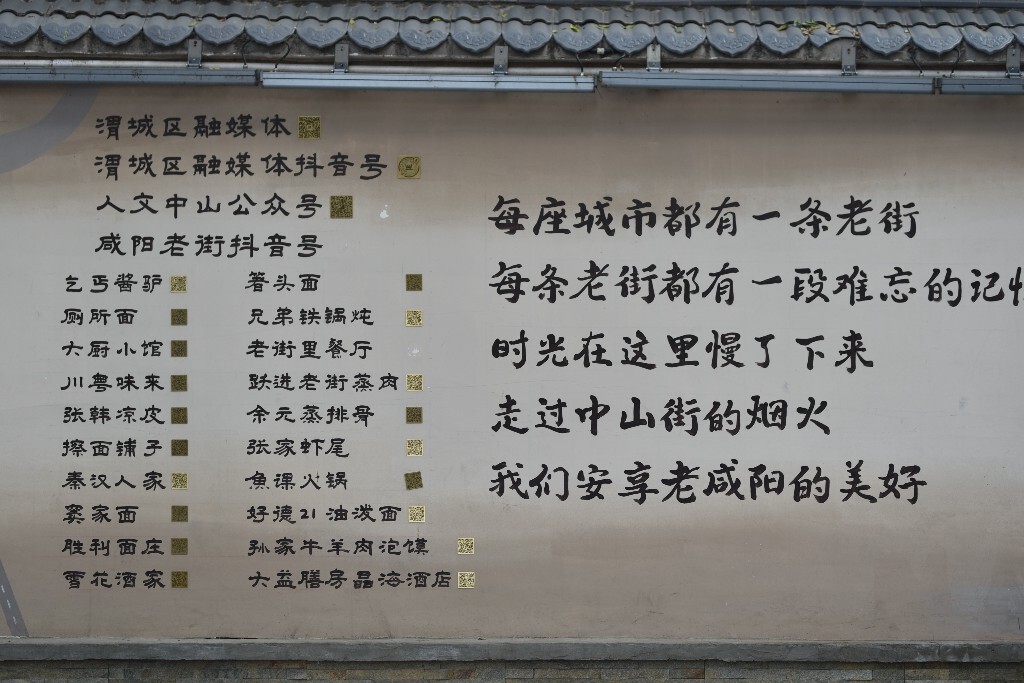 渭城区融媒体
渭城区融媒体抖音号
人文中山公众号
咸阳老街抖音号
乞丐酱驴
厕所面
大厨小馆
川粤味来
张韩凉皮
擦面铺子
秦汉人家
窦家面
胜利面庄
雪花酒家
箸头面
兄弟铁锅炖
老街里餐厅
跃进老街蒸肉
余元蒸排骨
张家虾尾
鱼课火锅
好德21油泼面
孙家牛羊肉泡馍
大益膳房晶海酒店
每座城市都有一条老街
每条老街都有一段难忘的记忆
时光在这里慢了下来
走过中山街的烟火
我们安享老咸阳的美好